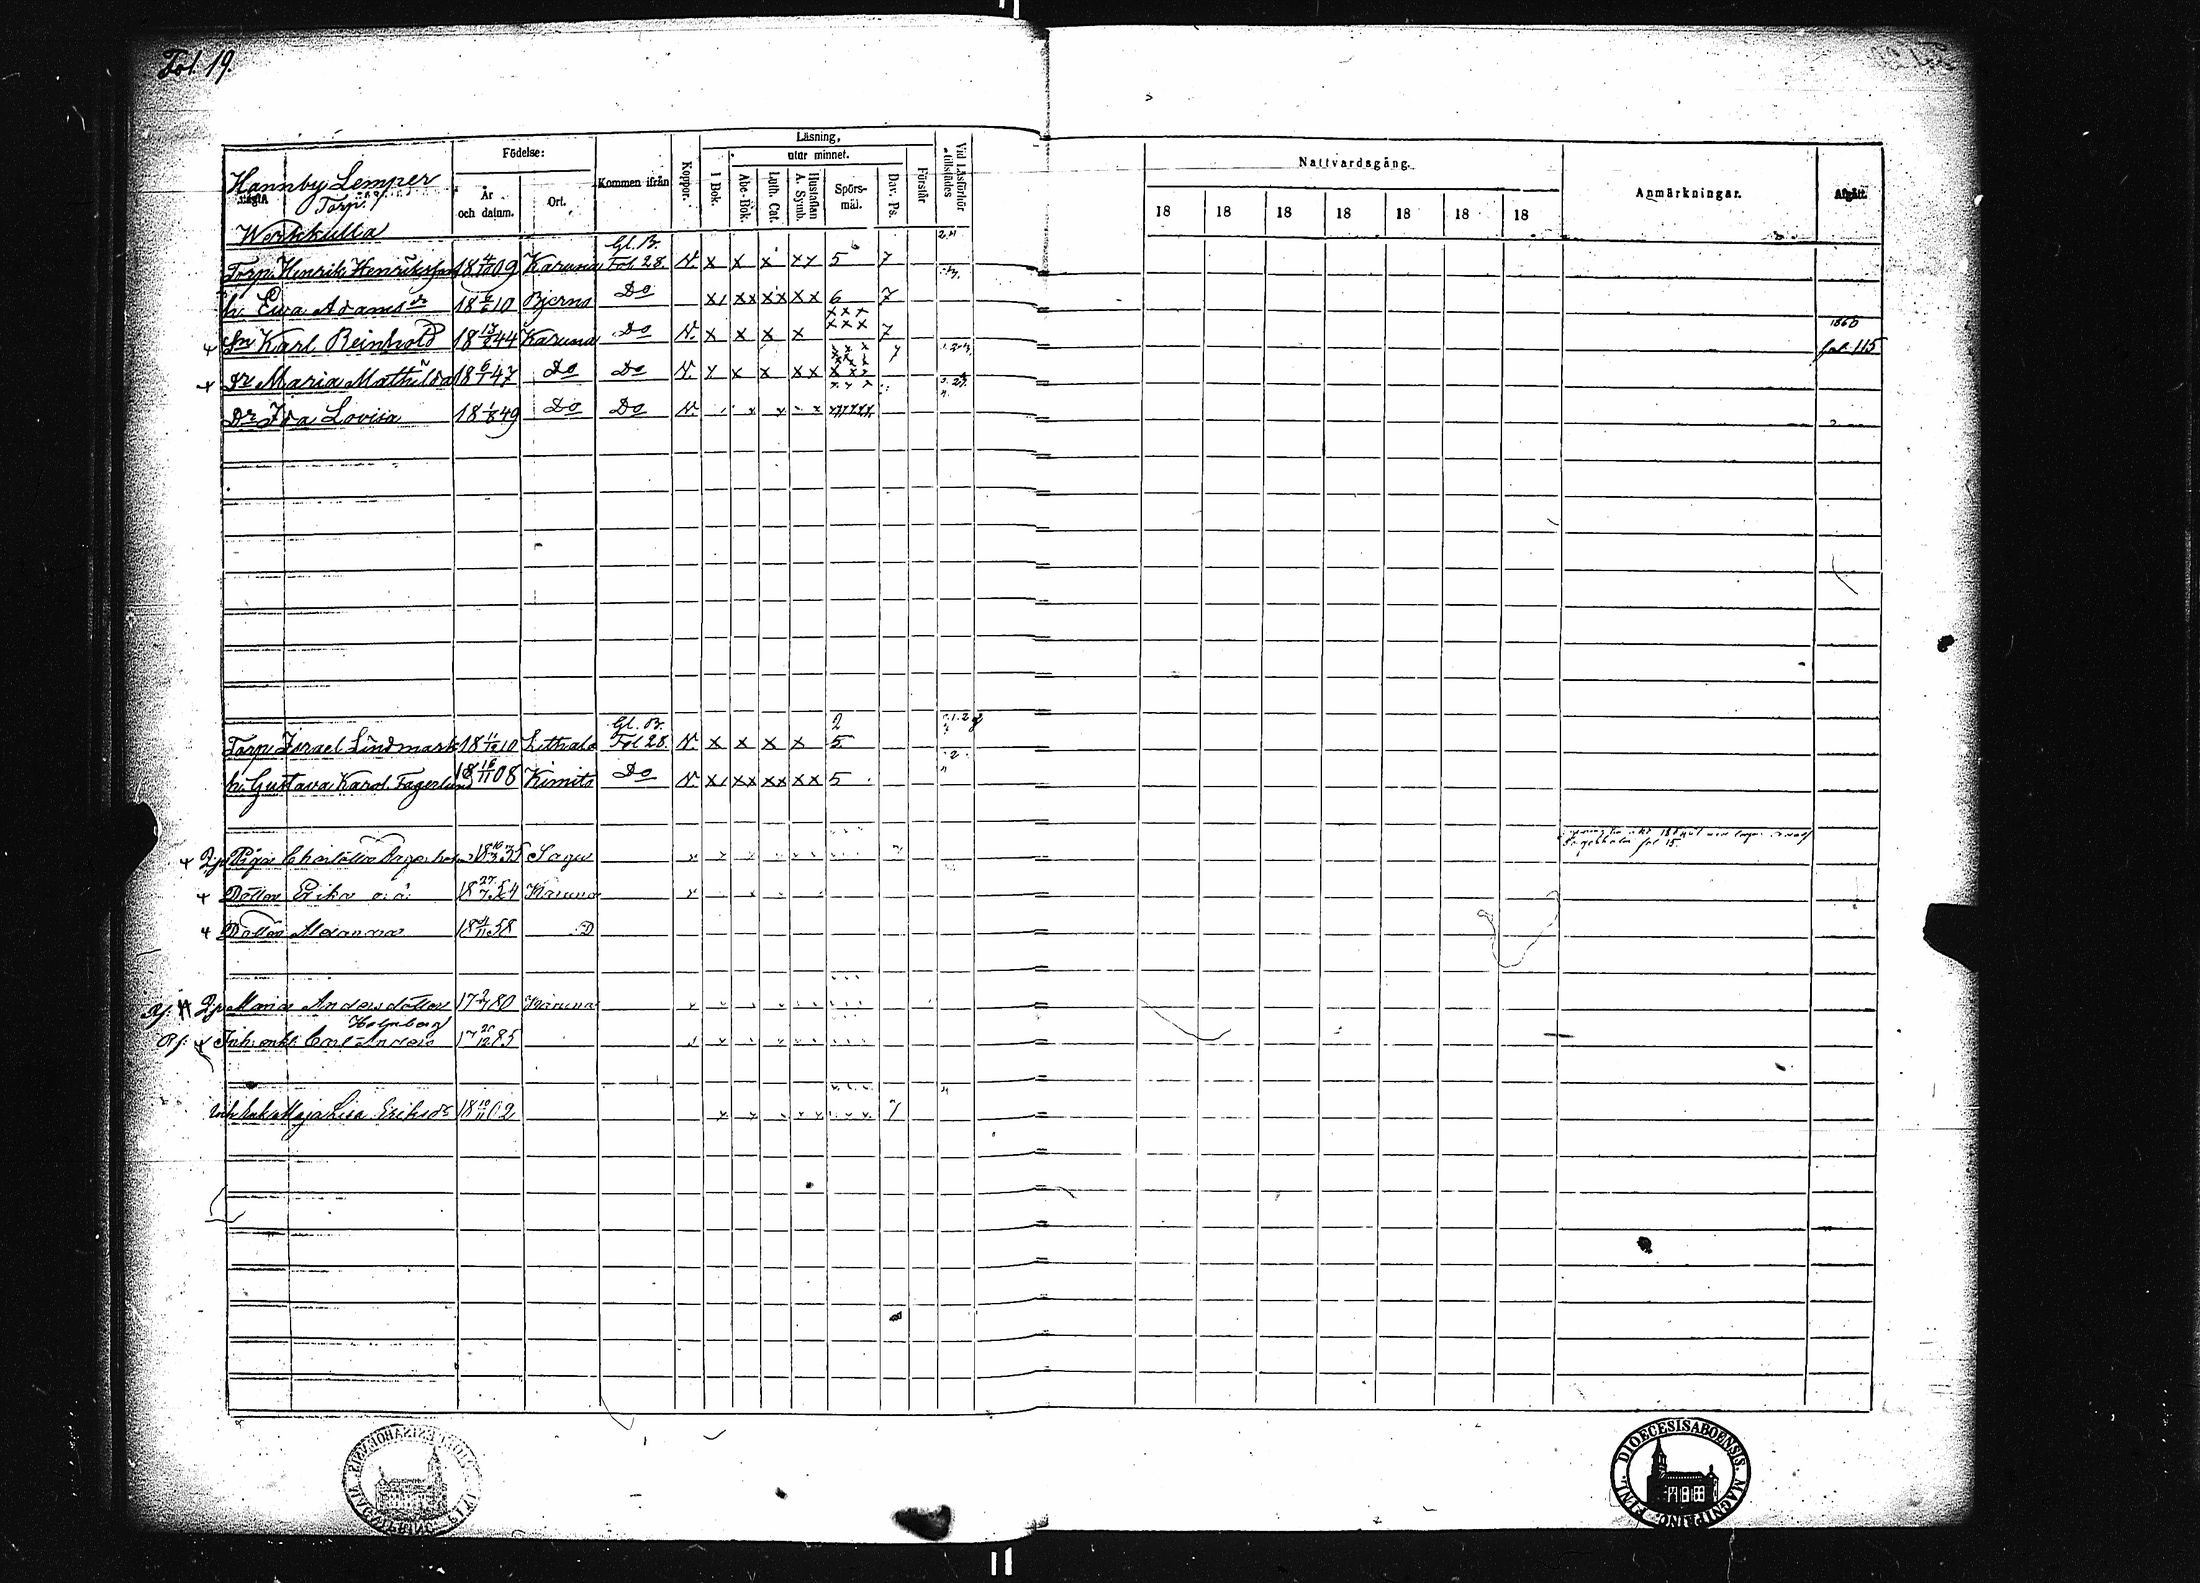 Fol. 19.
Födelse: Läsning, Nattvardsgång. Anmärkningar. Afgått.
utur minnet.
Hannby Lemper År och datum. Ort. Kommen ifrån Koppor. I Bok. Abc-Bok. Luth. Cat. Hustaflan A. Symb. Spörsmål. Dav. Ps. Förstår Vid Läsförhör tillstädes
Torp. 18 18 18 18 18 18 18
Workkulla
Gl. B.
Torp. Henrik Henriksson 18 4/10 09 Karuna Fol 28. V. x x x xx 5 7
h. Ewa Adamsdr 18 6/6 10 Bjerno Do x xx xx xx 6 7
Sn Karl Reinhold 18 13/2 44 Karuna Do V. x x x x xxx 7 1860
fol. 115
Dr Maria Mathilda 18 6/1 47 Do Do V. x x x xx xxx 7
Dr Ida Lovisa 18 1/8 49 Do Do V.
Gl. B. 2
Torp. Israel Lindmark 18 11/12 10 Fol 28. V. x x x x 5
h. Gustava Karol. Fagerlund 18 16/11 08 Kimito Do V. x xx xx xx 5
Piga Sagu
fol 15.
Dotter Erika o. ä. 18 27/7 54 Karuna
Dotter 18 4/11 58 D
Maria Andersdotter 17 80 Karuna
Holmberg
Inh. enkl. Carl Anders 17 85
Maja Lisa Eriksdr 18 10/11 02 7
DIOECESIS ABOENSIS. MAGNI PRINC. FINL.